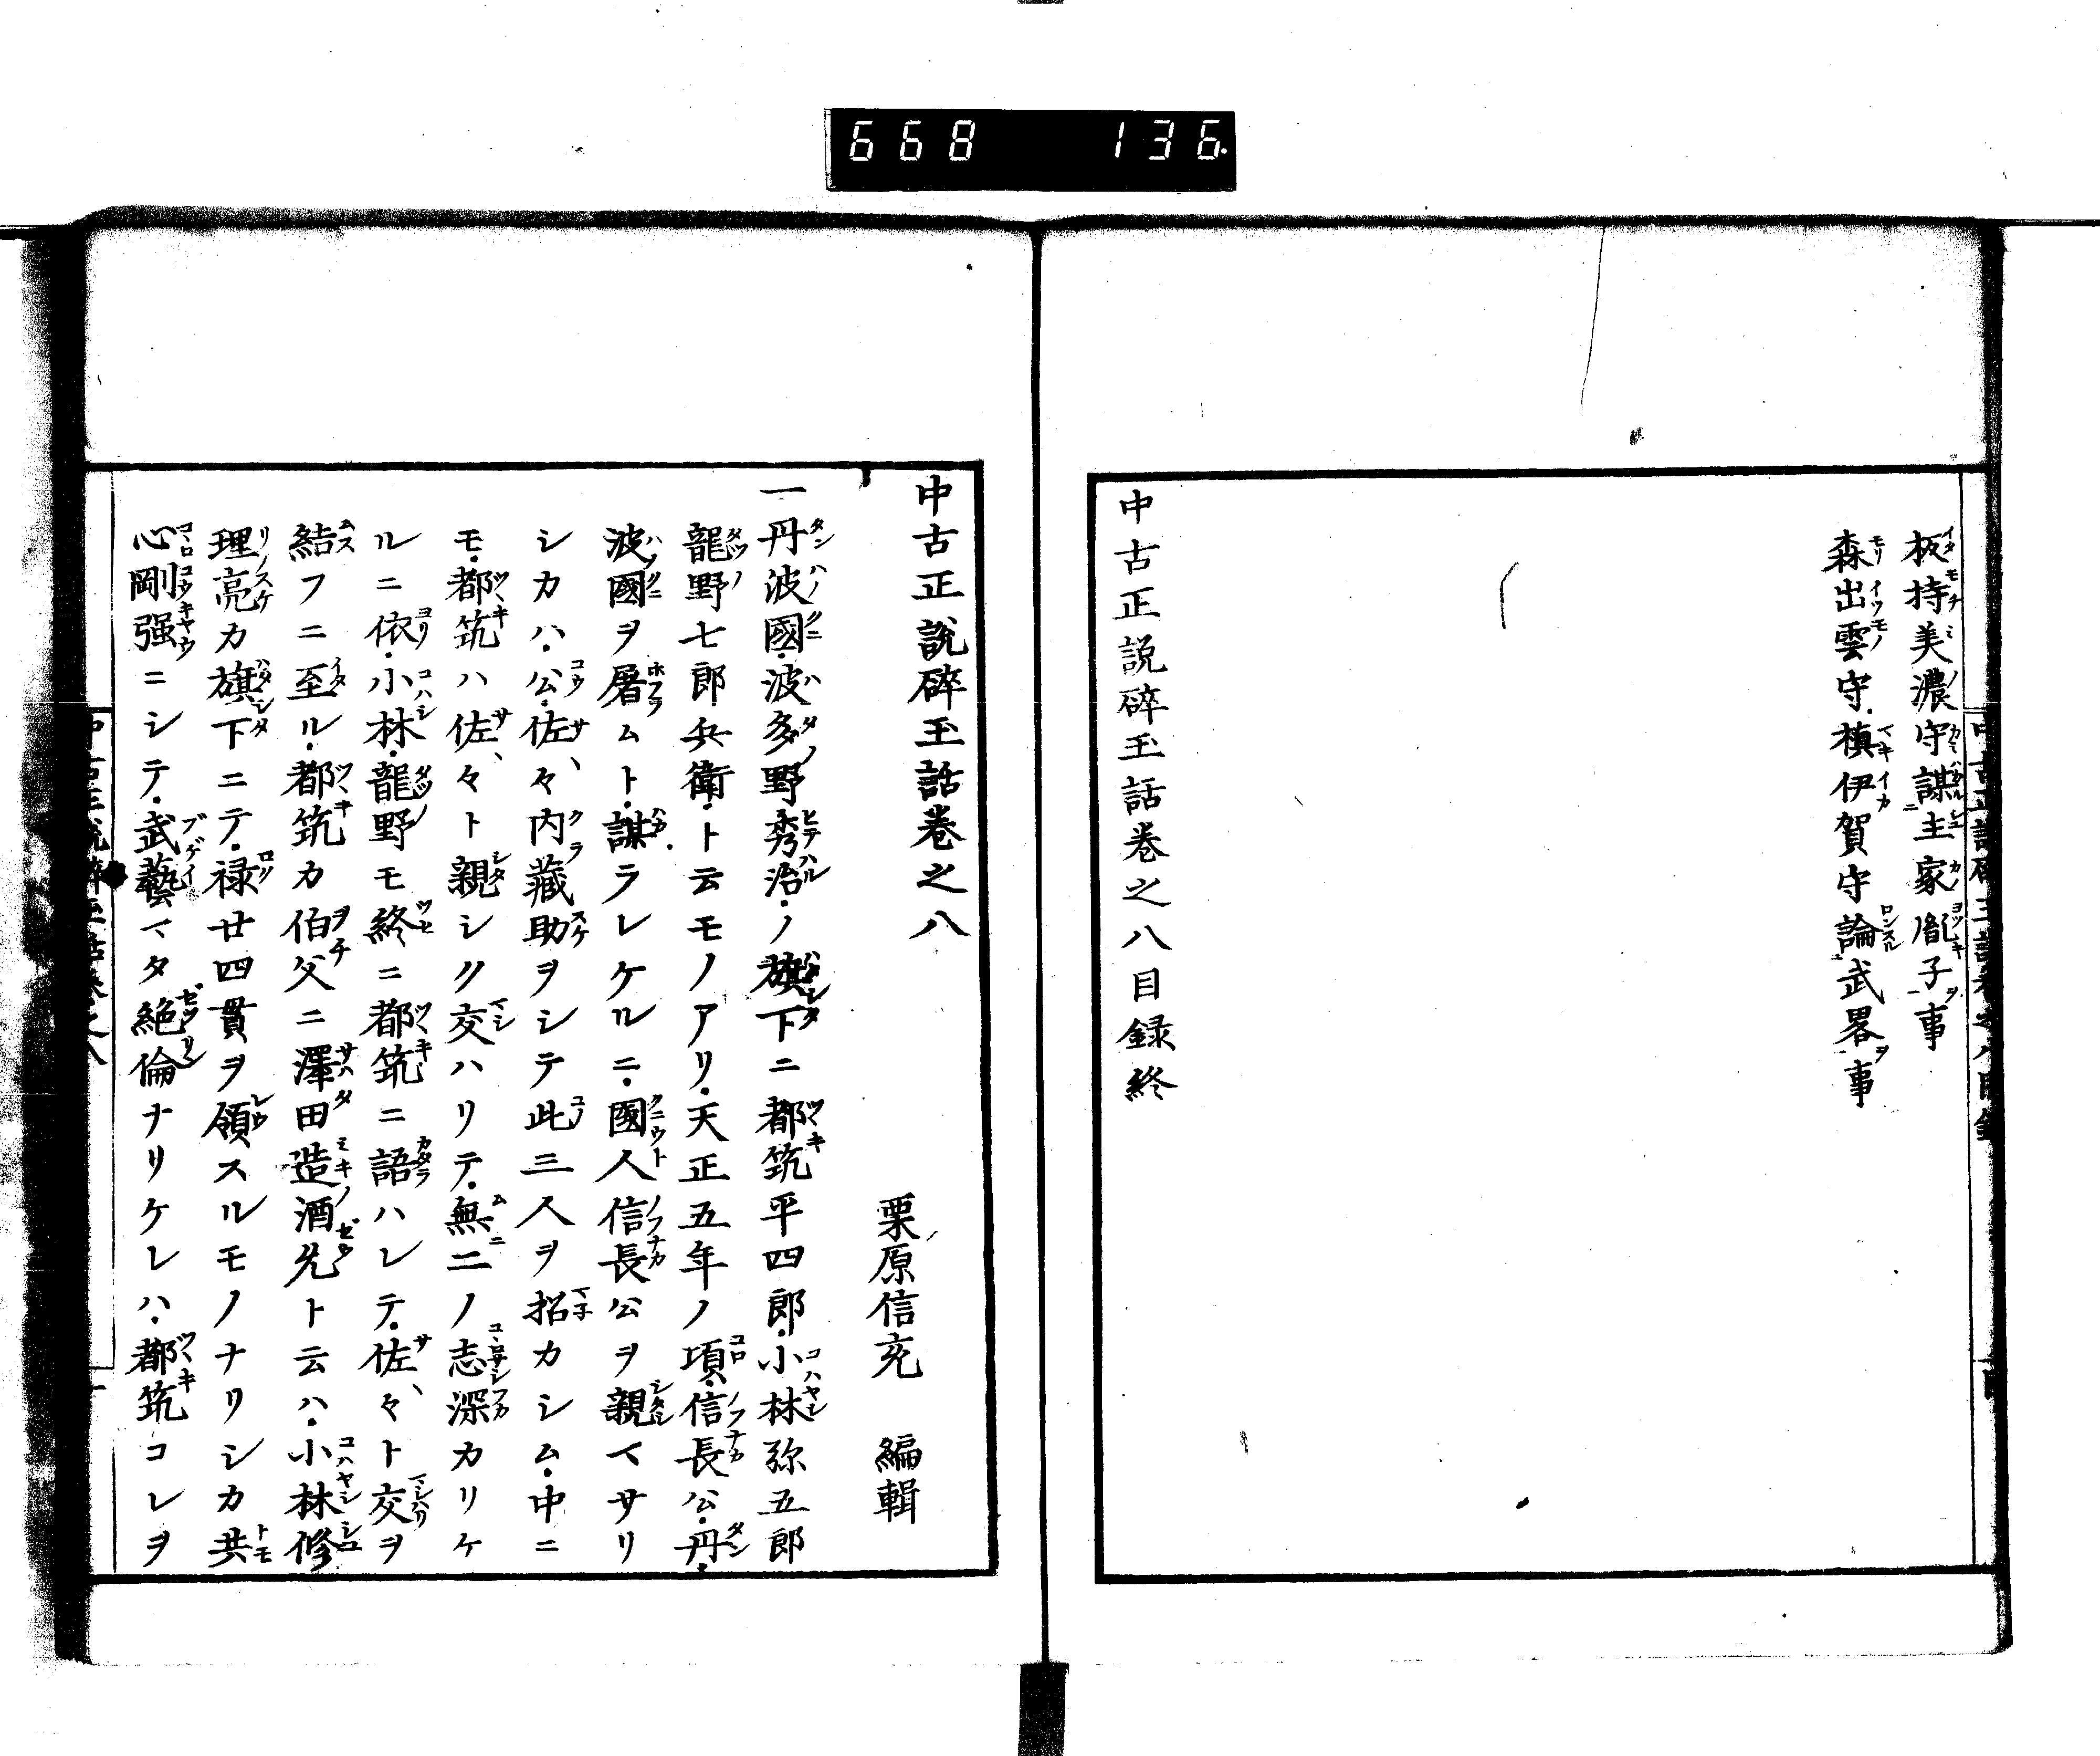 668 136
板持美濃守謀主家胤子事
森出雲守槙伊賀守論武畧事
中古正説碎玉話巻之八目録終
中古正説碎玉話巻之八
栗原信充 編輯
一丹波國波多野秀治ノ旗下ニ都筑平四郎小林弥五郎
龍野七郎兵衛ト云モノアリ天正五年ノ項信長公丹
波國ヲ屠ムト謀ラレケルニ國人信長公ヲ親マサリ
シカハ公佐々内藏助ヲシテ此三人ヲ招カシム中ニ
モ都筑ハ佐々ト親シク交ハリテ無二ノ志深カリケ
ルニ依小林龍野モ終ニ都筑ニ語ハレテ佐々ト交ヲ
結フニ至ル都筑カ伯父ニ澤田造酒允ト云ハ小林修
理亮カ旗下ニテ禄廿四貫ヲ領スルモノナリシカ共
心剛强ニシテ武藝マタ絶倫ナリケレハ都筑コレヲ